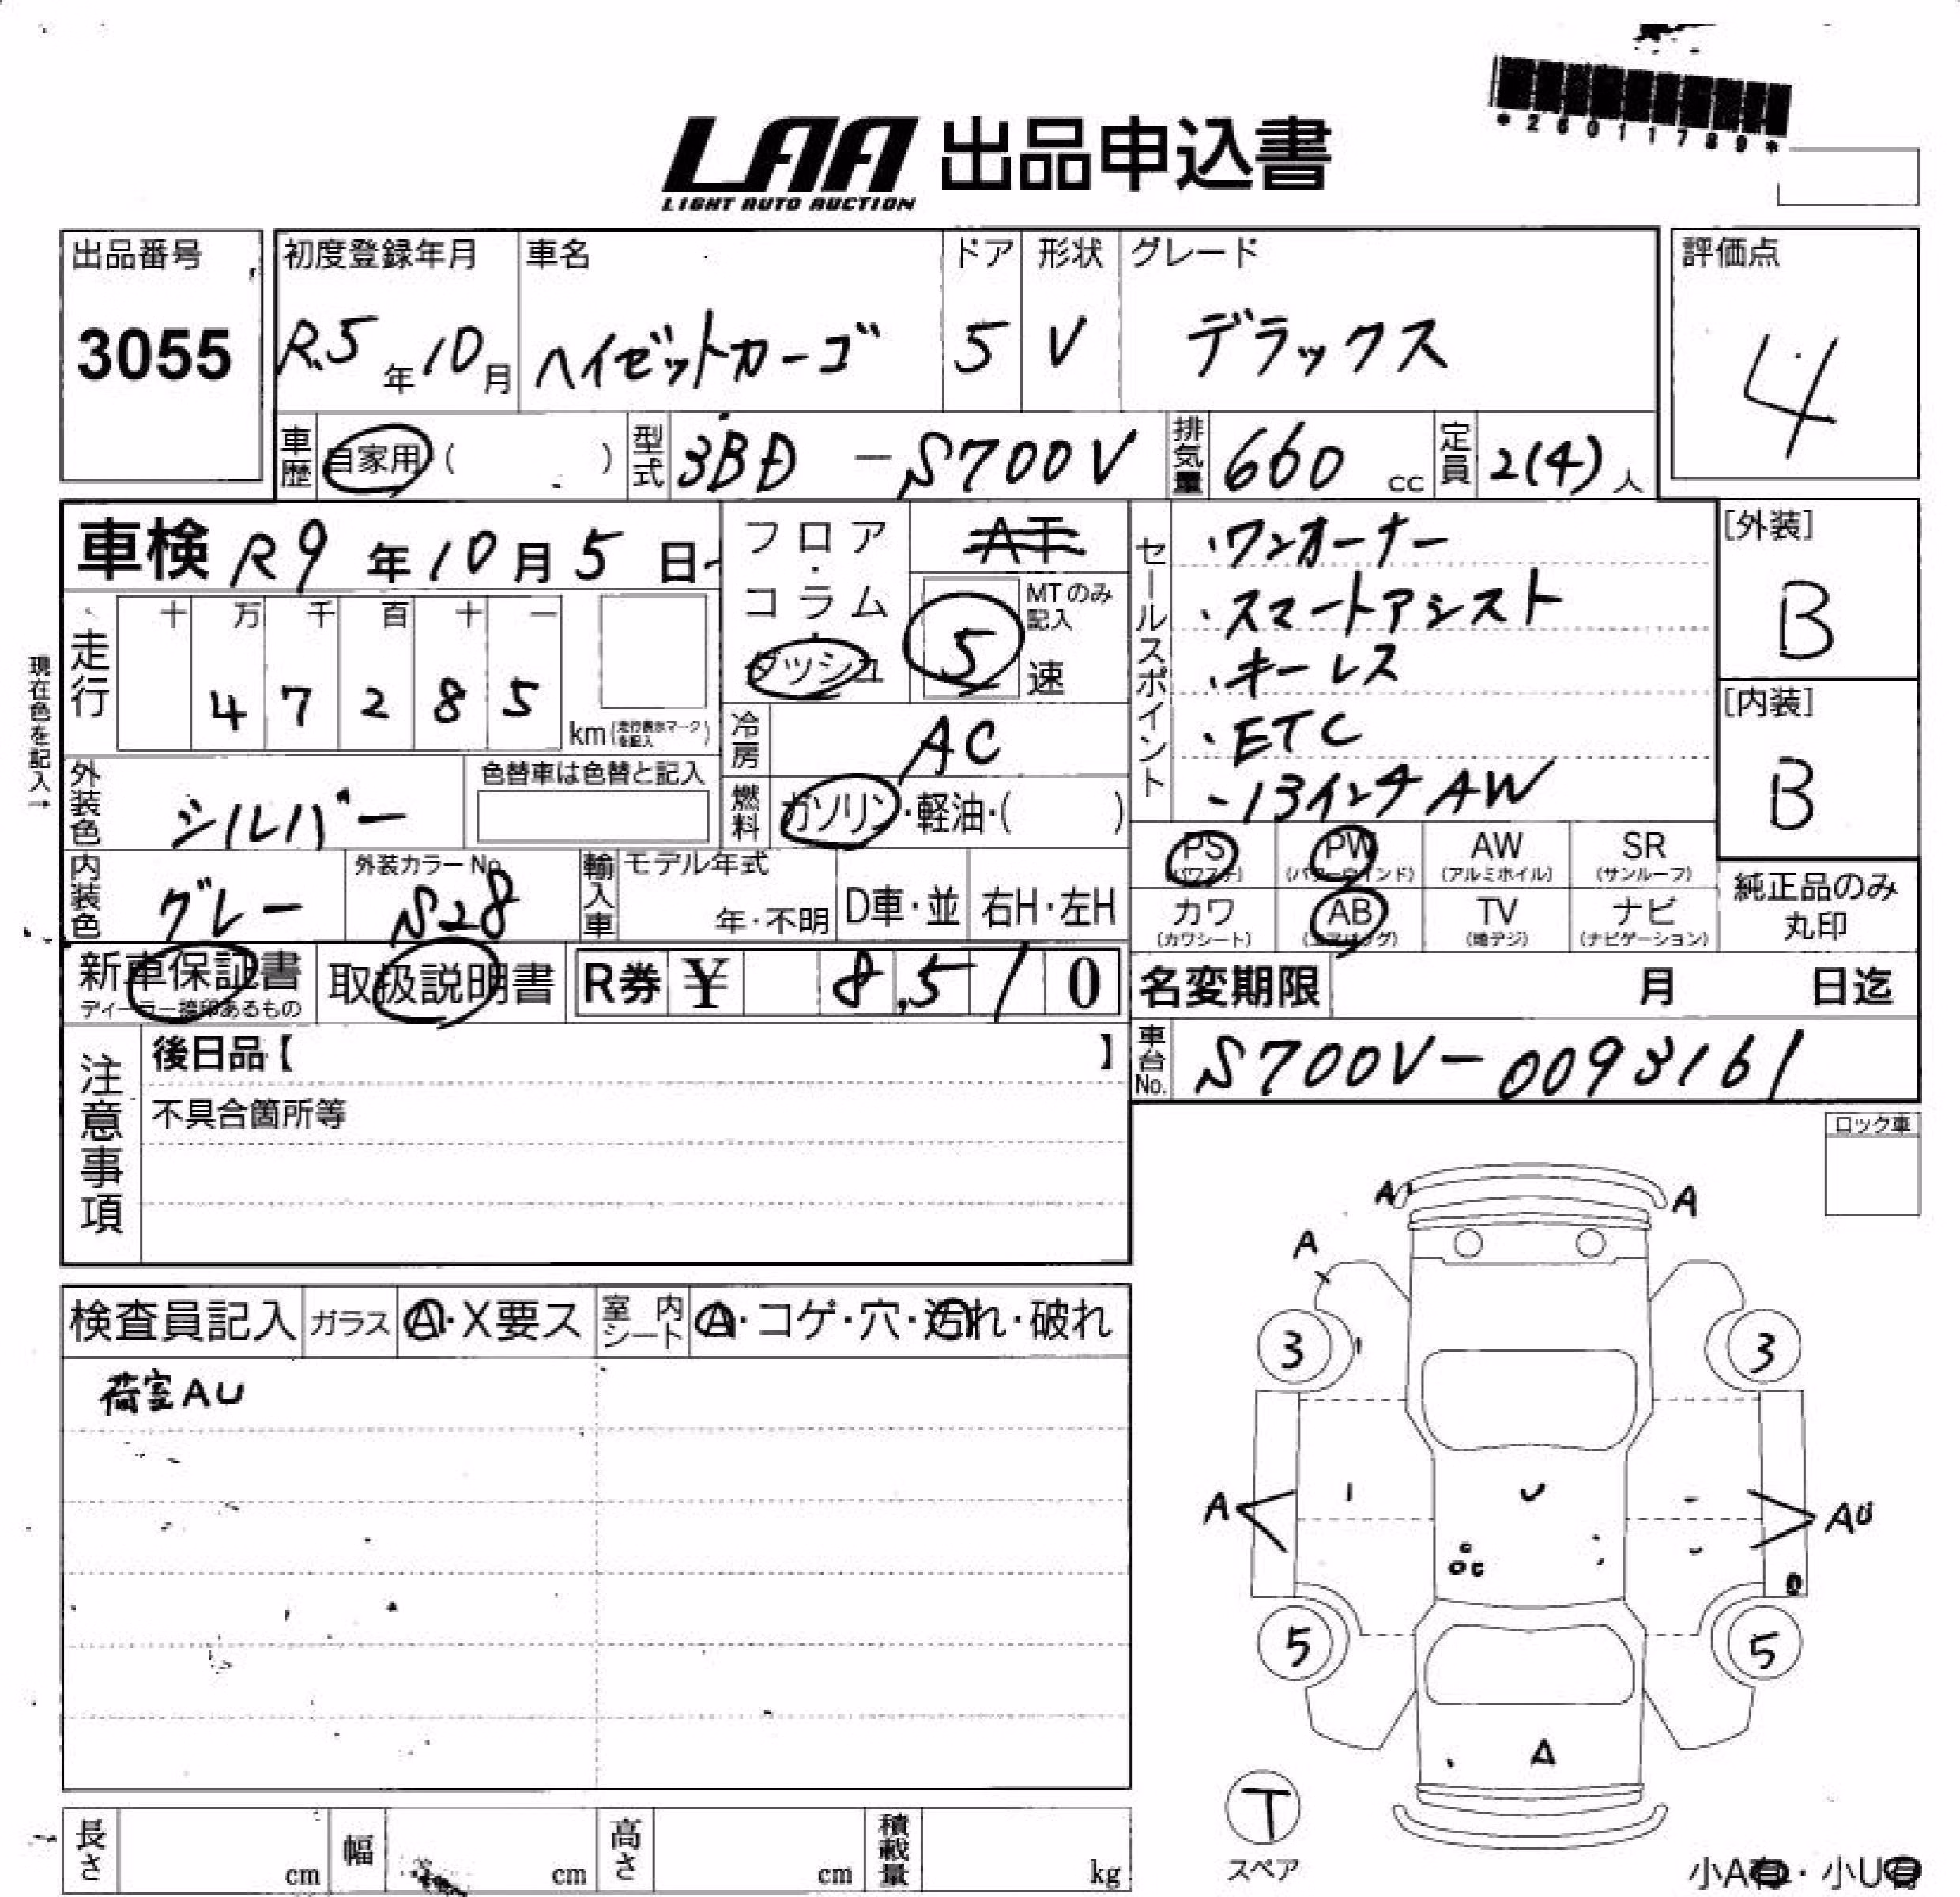 *26011789*
LAA 出品申込書
LIGHT AUTO AUCTION
出品番号
3055
初度登録年月
R5年10月
車名
ヘイゼットカーゴ
ドア
5
形状
V
グレード
デラックス
評価点
4
車歴 自家用( )
型式 3BD-S700V
排気量 660 cc
定員 2(4)人
車検 R9年10月5日
フロア・コラム・ダッシュ
AT
MTのみ記入
5速
セールスポイント
・ワンオーナー
・スマートアシスト
・キーレス
・ETC
・13インチAW
[外装]
B
[内装]
B
現在色を記入→
走行
十 万 千 百 十 一
4 7 2 8 5
km(走行表示マークを記入)
冷房 AC
燃料 ガソリン・軽油・( )
外装色 シルバー
色替車は色替と記入
内装色 グレー
外装カラーNo.
S28
輸入車
モデル年式
年・不明
D車・並
右H・左H
PS (パワステ)
PW (パワーウインド)
AW (アルミホイル)
SR (サンルーフ)
カワ (カワシート)
AB (エアバッグ)
TV (地デジ)
ナビ (ナビゲーション)
純正品のみ丸印
新車保証書
ディーラー捺印あるもの
取扱説明書
R券 ¥ 8,510
名変期限 月 日迄
車台No. S700V-0093161
注意事項
後日品【 】
不具合箇所等
ロック車
検査員記入
ガラス
A・X要ス
室内シート
A・コゲ・穴・汚れ・破れ
荷室AU
A A
A
3 3
A AU
5 5
A
T
スペア
長さ cm
幅 cm
高さ cm
積載量 kg
小A有・小U有